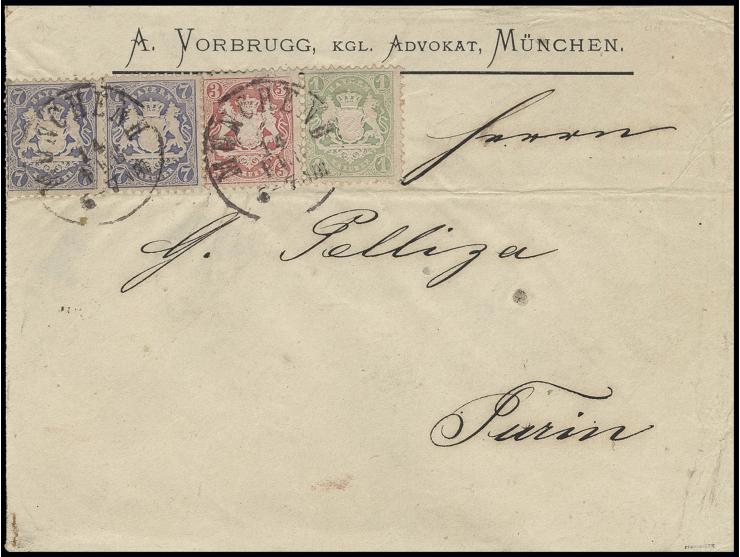 A. VORBRUGG, KGL. ADVOKAT, MÜNCHEN.
7 7 7 7 3 3 1 1
MÜNCHEN MÜNCHEN
Herrn
G. Pelliza
Turin